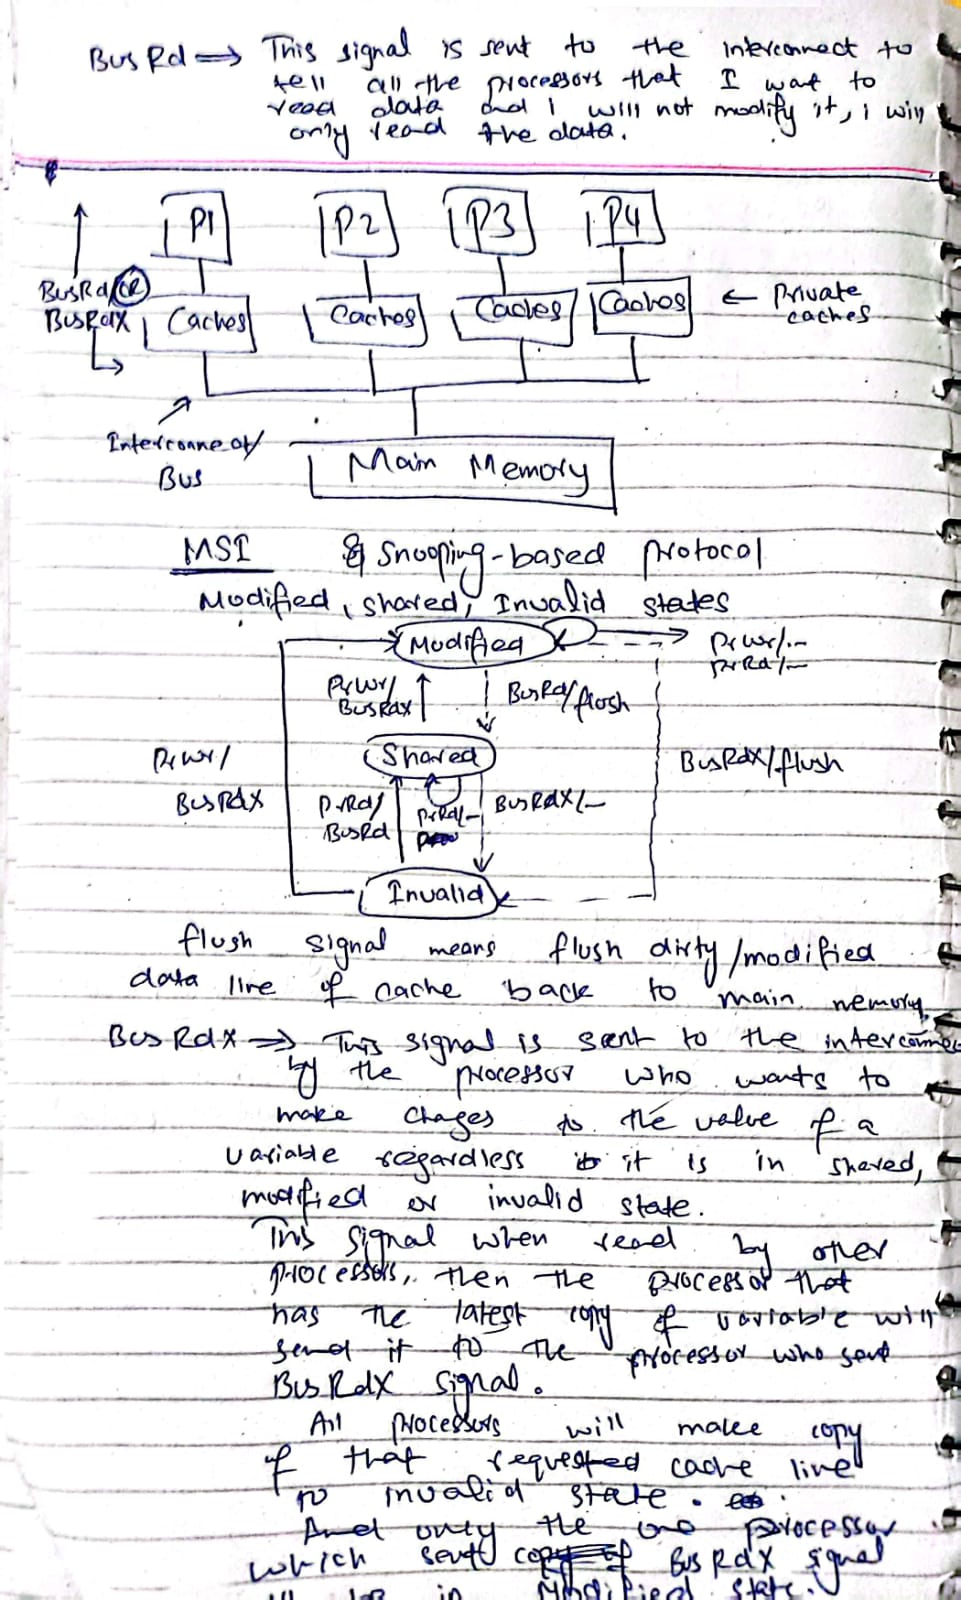 BusRd ⇒ This signal is sent to the interconnect to
tell all the processors that I want to
read data and I will not modify it, i will
only read the data.
P1 P2 P3 P4
BusRd/OR
BusRdX
Caches Caches Caches Caches ← Private
caches
Interconnect/
Bus
Main Memory
MSI & Snooping-based protocol
Modified, shared, Invalid states
Modified
PrWr/--
PrRd/--
PrWr/
BusRdX
BusRd/flush
Shared
PrWr/
BusRdX
BusRdX/flush
PrRd/
BusRd
PrRd/--
BusRdX/--
Invalid
flush signal means flush dirty/modified
data line of cache back to main memory.
BusRdX ⇒ This signal is sent to the interconnec
by the processor who wants to
make chages to the value of a
variable regardless it is in shared,
modified or invalid state.
This signal when read by other
processors, then the processor that
has the latest copy of variable will
send it to the processor who sent
BusRdX signal.
All processors will make copy
of that requested cache line
to invalid state.
And only the one processor
which sent BusRdX signal
in Modified state.